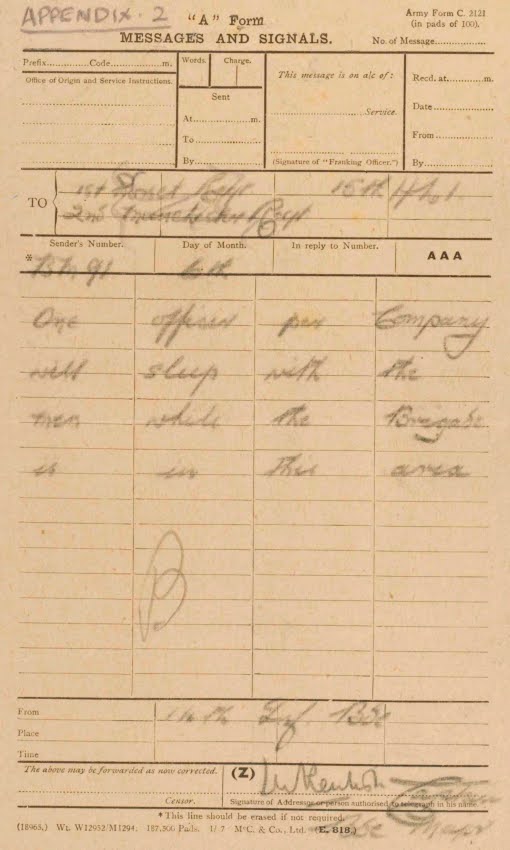 APPENDIX. 2
"A" Form
MESSAGES AND SIGNALS.
Army Form C. 2121
(in pads of 100).
No. of Message
Prefix Code m.
Office of Origin and Service Instructions.
Words. Charge.
Sent
At m.
To
By
This message is on a/c of:
Service.
(Signature of "Franking Officer.")
Recd. at m.
Date
From
By
TO
1st Dorset Regt 15th
2nd Manchester Regt
Sender's Number. Day of Month. In reply to Number. AAA
* BM 91 6th
One officer per Company
will sleep with the
men while the Brigade
is in this area
From 14th Inf Bde
Place
Time
The above may be forwarded as now corrected. (Z)
Censor. Signature of Addressor or person authorised to telegraph in his name.
Bde Major
* This line should be erased if not required.
(18965.) Wt. W12952/M1294. 187,500 Pads. 1/17 McC. & Co., Ltd. (E. 818.)